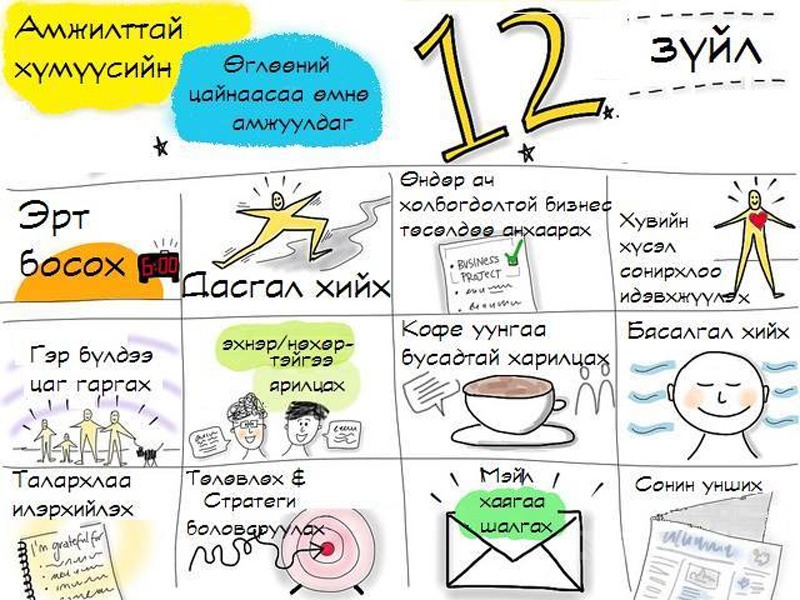 Амжилттай
хүмүүсийн
Өглөөний
цайнаасаа өмнө
амжуулдаг
12
зүйл
Эрт
босох
6:00
Дасгал хийх
Өндөр ач
холбогдолтой бизнес
төсөлдөө анхаарах
BUSINESS
PROJECT
Хувийн
хүсэл
сонирхлоо
идэвхжүүлэх
Гэр бүлдээ
цаг гаргах
эхнэр/нөхөр-
тэйгээ
ярилцах
Кофе уунгаа
бусадтай харилцах
Бясалгал хийх
Талархлаа
илэрхийлэх
I'm grateful for
Төлөвлөх &
Стратеги
боловаруулах
Мэйл
хаягаа
шалгах
Сонин унших